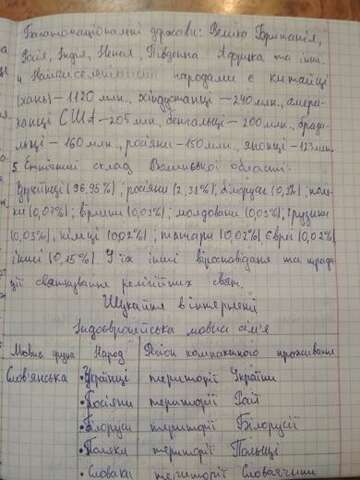 Багатонаціональні держави: Велика Британія,
Росія, Індія, Непал, Південна Африка та інші
4 Найчисельнішими народами є китайці
(хань) – 1120 млн., хіндустанці – 240 млн., амери-
канці США – 205 млн., бенгальці – 200 млн., брази-
льці – 160 млн., росіяни – 150 млн., японці – 123 млн.
5 Етнічний склад Волинської області:
Українці (96,95%); росіяни (2,31%); білоруси (0,3%); поля-
ки (0,07%); вірмени (0,03%); молдовани (0,03%); грузини
(0,03%), німці (0,02%), татари (0,02%) євреї (0,02%)
інші (0,15%). У їх інші віросповідання та тради-
ції святкування релігійних свят.
Шукайте в інтернеті
Індоєвропейська мовна сім'я
Мовна група Народ Район компактного проживання
Слов'янська • Українці території України
• Росіяни території Росії
• Білоруси території Білорусії
• Поляки території Польщі
• Словаки території Словаччини